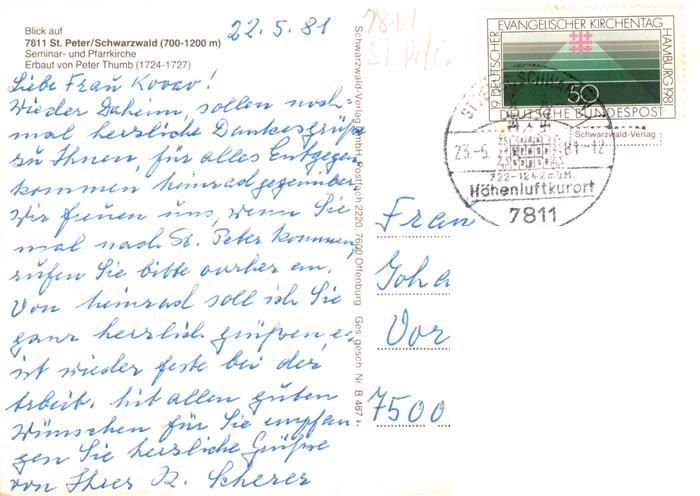 Blick auf
7811 St. Peter/Schwarzwald (700-1200 m)
Seminar- und Pfarrkirche
Erbaut von Peter Thumb (1724-1727)
22.5.81
Liebe Frau Kovac!
Wieder Daheim, sollen noch=
mal herzliche Dankesgrüße
zu Ihnen, für alles Entgegen
kommen heinrad gegenüber.
Wir freuen uns, wenn Sie
mal nach St. Peter kommen,
rufen Sie bitte vorher an.
Von heinrad soll ich Sie
ganz herzlich grüßen, er
ist wieder feste bei der
Arbeit. Mit allen guten
Wünschen für Sie empfan-
gen Sie herzliche Grüße
von Ihrer R. Scherer
Schwarzwald-Verlag GmbH Postfach 2220, 7600 Offenburg Ges. gesch. Nr. B 487
7811
St. Peter
19. DEUTSCHER EVANGELISCHER KIRCHENTAG HAMBURG 1981
50
DEUTSCHE BUNDESPOST
Schwarzwald-Verlag
ST. PETER, SCHWARZW
23.-5. 81-12
722-1242 m ü.M.
Höhenluftkurort
7811
Frau
Joha
Vor
7500